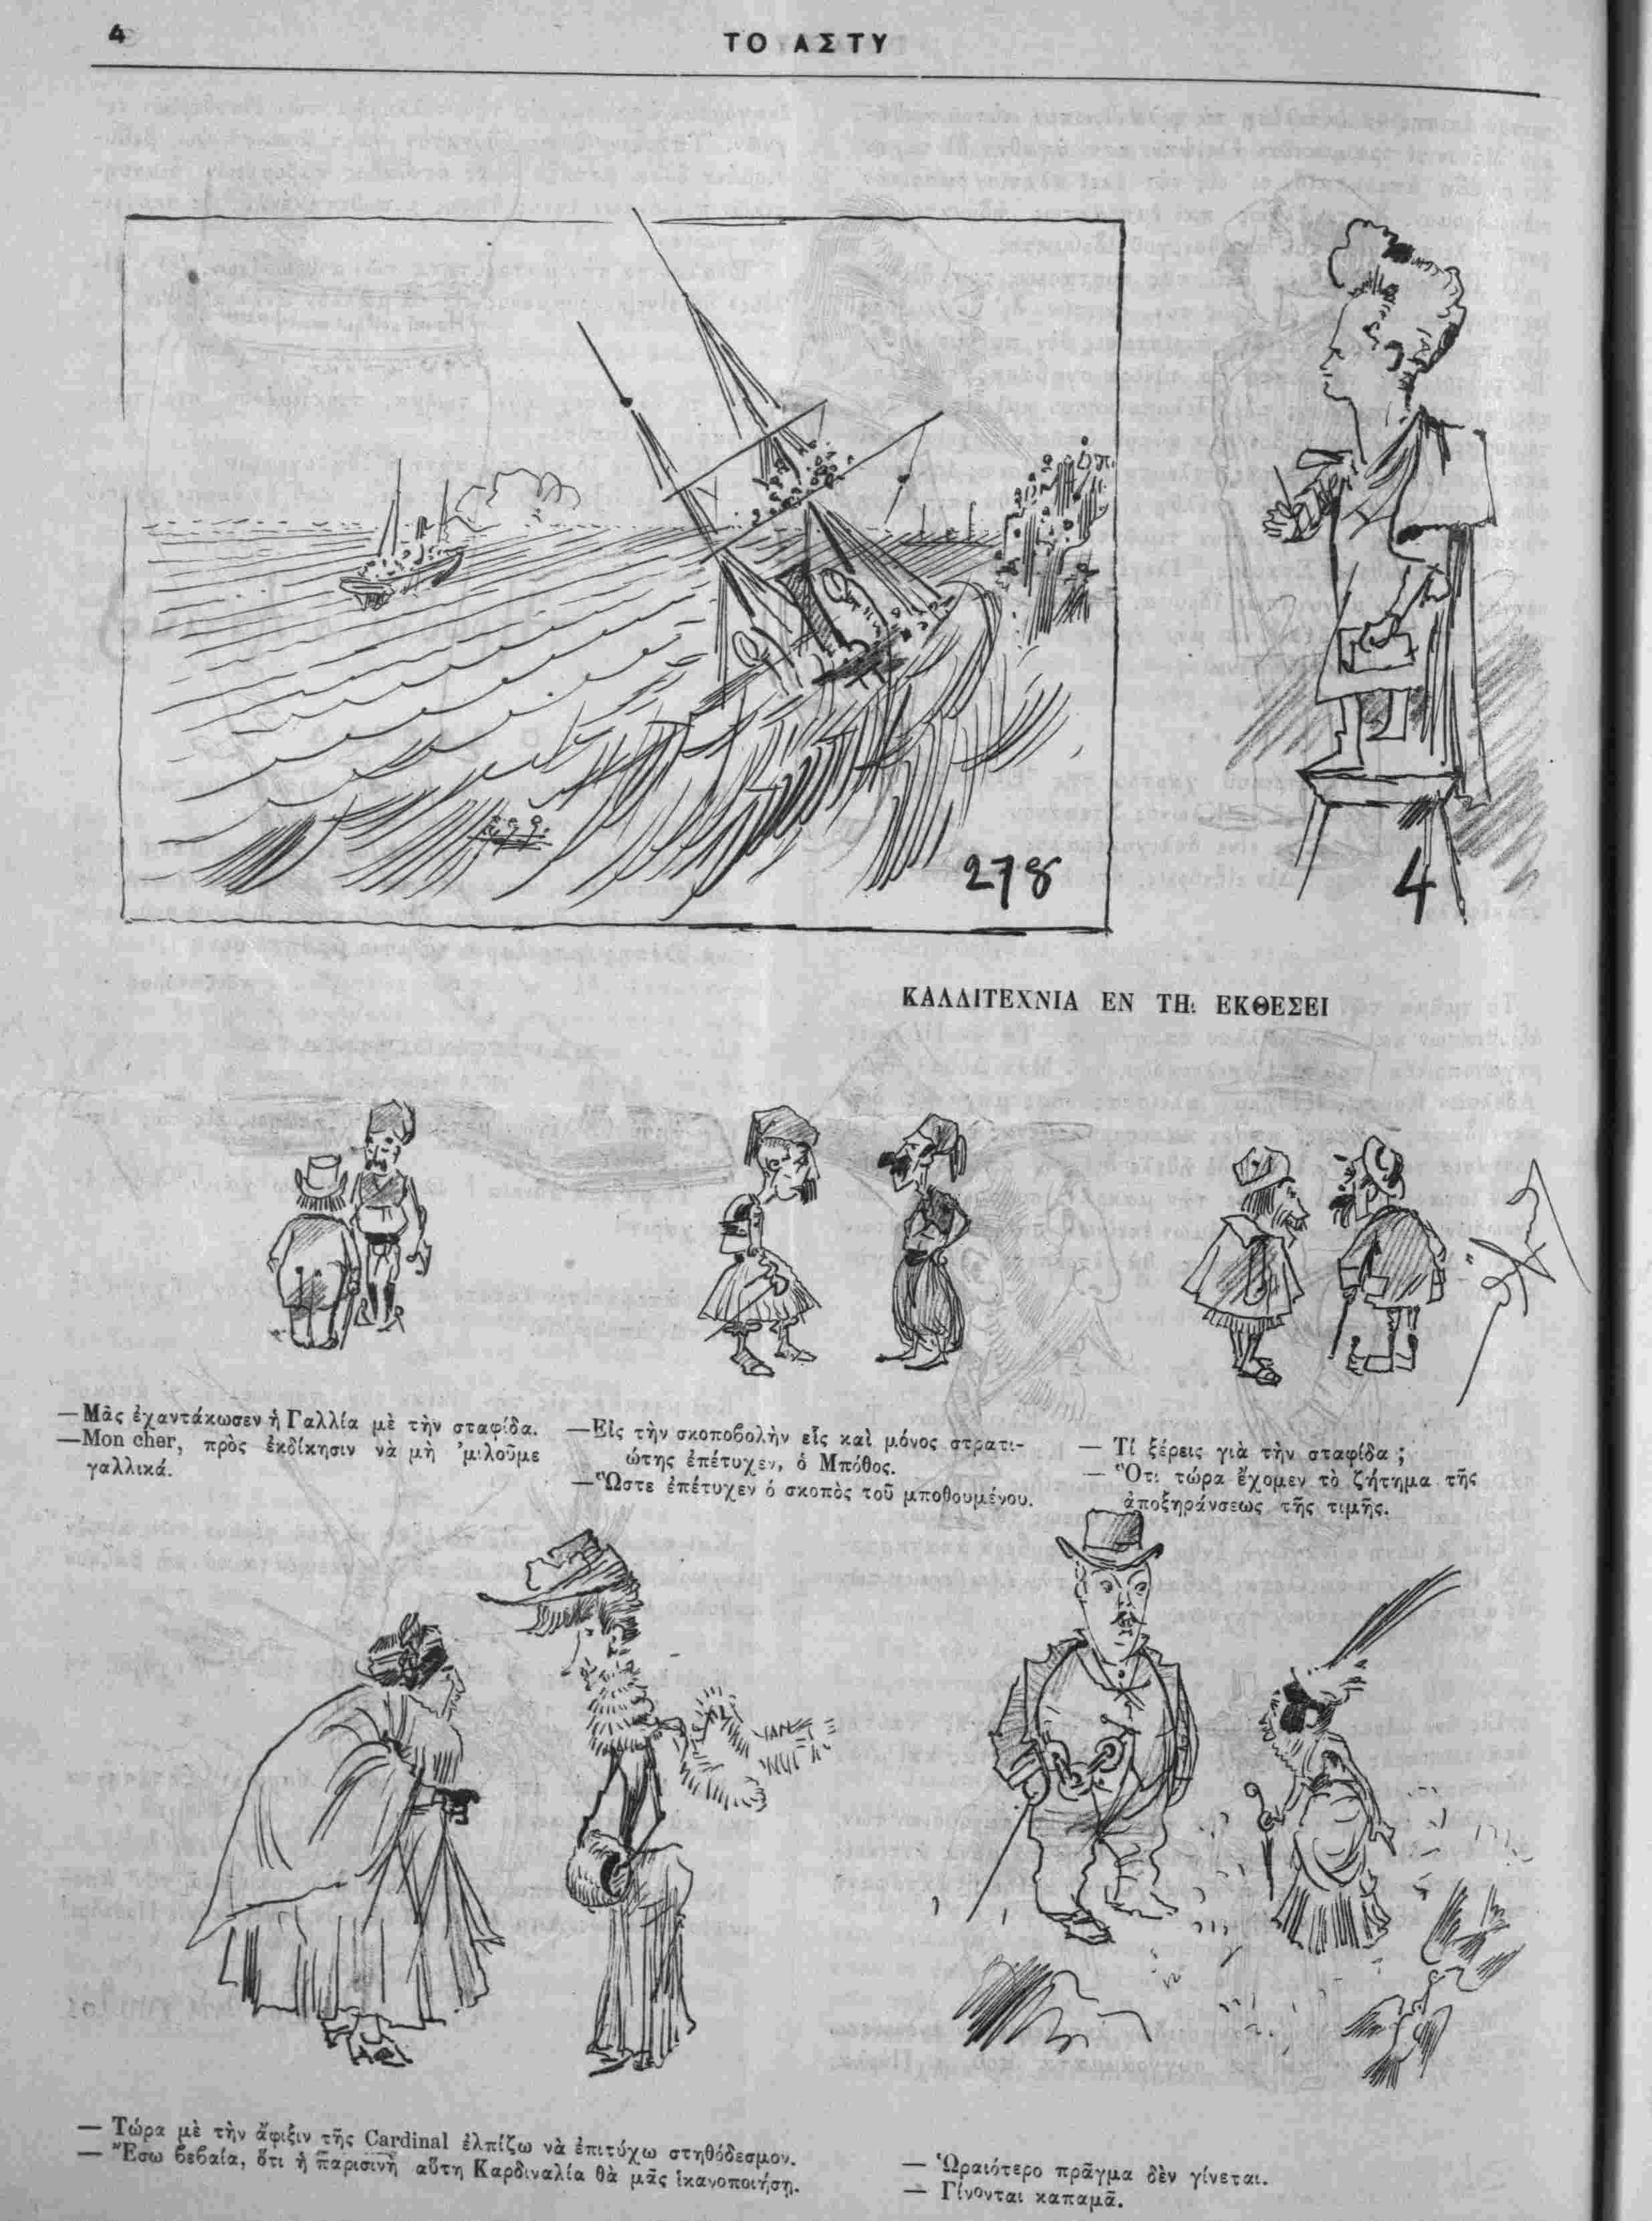 4
ΤΟ ΑΣΤΥ
278
4
ΚΑΛΛΙΤΕΧΝΙΑ ΕΝ ΤΗι ΕΚΘΕΣΕΙ
—Μᾶς ἐχαντάκωσεν ἡ Γαλλία μὲ τὴν σταφίδα.
—Mon cher, πρὸς ἐκδίκησιν νὰ μὴ ’μιλοῦμε
γαλλικά.
—Εἰς τὴν σκοποβολὴν εἷς καὶ μόνος στρατι-
ώτης ἐπέτυχεν, ὁ Μπόθος.
—Ὥστε ἐπέτυχεν ὁ σκοπὸς τοῦ μποθουμένου.
— Τί ξέρεις γιὰ τὴν σταφίδα ;
— Ὅτι τώρα ἔχομεν τὸ ζήτημα τῆς
ἀποξηράνσεως τῆς τιμῆς.
— Τώρα μὲ τὴν ἄφιξιν τῆς Cardinal ἐλπίζω νὰ ἐπιτύχω στηθόδεσμον.
— Ἔσω βεβαία, ὅτι ἡ παρισινὴ αὕτη Καρδιναλία θὰ μᾶς ἱκανοποιήσῃ.
— Ὡραιότερο πρᾶγμα δὲν γίνεται.
— Γίνονται καπαμᾶ.